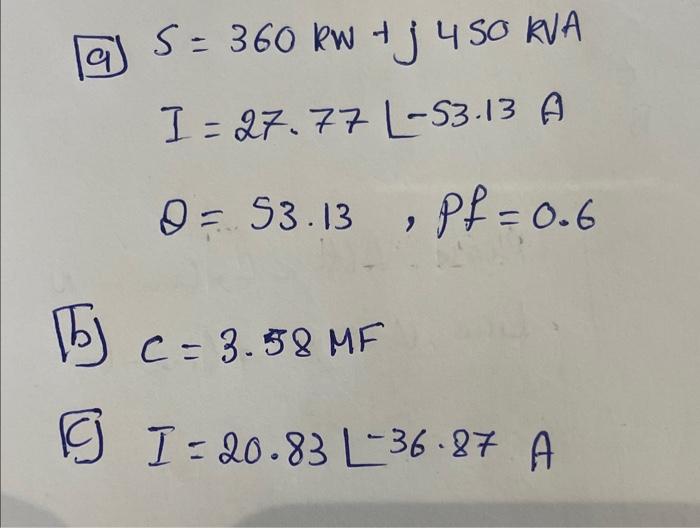 a) S = 360 kW + j 450 kVA
I = 27.77 ∟-53.13 A
θ = 53.13 , Pf = 0.6
b) C = 3.58 MF
c) I = 20.83 ∟-36.87 A